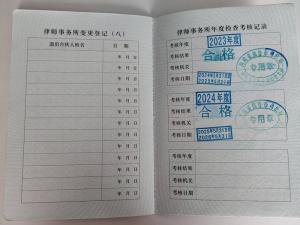 律师事务所变更登记（八）
退出合伙人姓名 日期
年 月 日
年 月 日
年 月 日
年 月 日
年 月 日
年 月 日
年 月 日
年 月 日
年 月 日
年 月 日
年 月 日
年 月 日
律师事务所年度检查考核记录
考核年度 2023年度
考核结果 合格
考核机关
专用章
考核日期
考核年度 2024年度
考核结果 合格
考核机关
专用章
考核日期
考核年度
考核结果
考核机关
考核日期